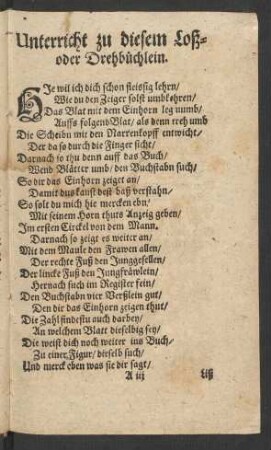 Unterricht zu diesem Loß-
oder Drehbüchlein.
HIe wil ich dich schon fleissig lehrn/
Wie du den Zeiger solst umbkehren/
Das Blat mit dem Einhorn leg numb/
Auffs folgend Blat/ als denn treh umb
Die Scheibn mit den Narrenkopff entwicht/
Der da so durch die Finger sicht/
Darnach so thu denn auff das Buch/
Wend Blätter umb/ den Buchstabn such/
So dir das Einhorn zeiget an/
Damit dus kanst dest baß verstahn/
So solt du mich hie mercken ebn/
Mit seinem Horn thuts Anzeig geben/
Im ersten Circkel von dem Mann.
Darnach so zeigt es weiter an/
Mit dem Maule den Frawen allen/
Der rechte Fuß den Junggesellen/
Der lincke Fuß den Jungfräwlein/
Hernach such im Register fein/
Den Buchstabn vier Verßlein gut/
Den dir das Einhorn zeigen thut/
Die Zahl findestu auch darbey/
An welchem Blatt dieselbig sey/
Die weist dich noch weiter ins Buch/
Zu einer Figur/ dieselb such/
Und merck eben was sie dir sagt/
A iij
Liß